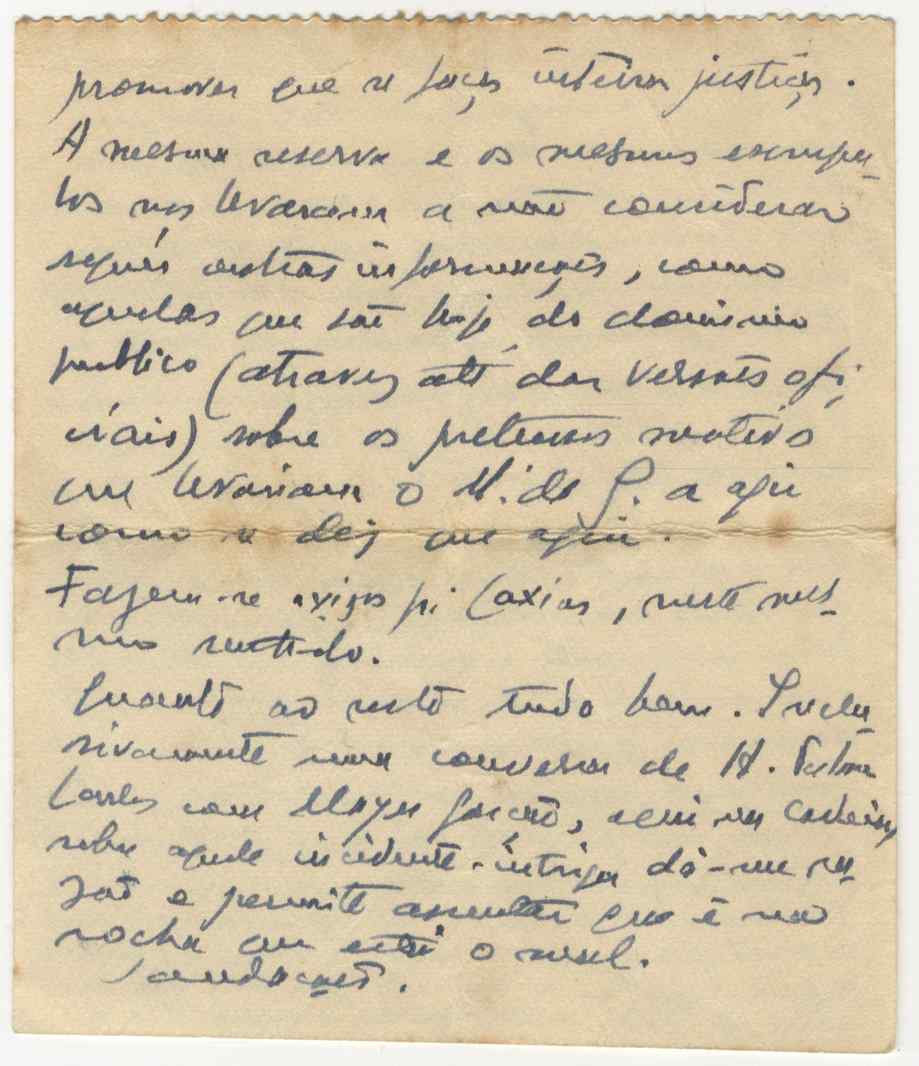 promover que se faça inteira justiça.
A mesma reserva e os mesmos escrupu-
los nos levaram a não considerar
sequér outras informações, como
aquelas que são hoje do dominio
publico (atraves até das versões ofi-
ciais) sobre os pretensos motivos
que levariam o M. de G. a agir
como se diz que agiu.
Fazem-se avisos p: Caxias, neste mes-
mo sentido.
Quanto ao resto tudo bem. Inclu-
sivamente uma conversa de H. Palma
Carlos com Mayer Garção,
sobre aquele incidente-intriga dá-me ra-
zão e permite que é na
rocha que está o mal.
Saudações.